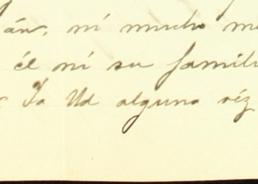 án, ni mucho me
él ni su famili
Ya Ud alguna véz